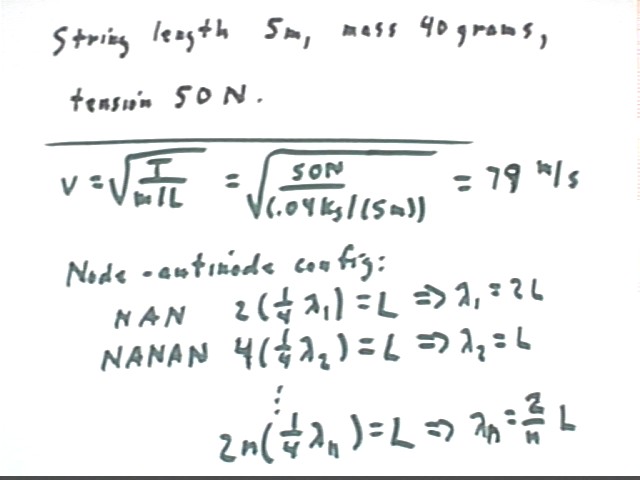 String length 5m, mass 40 grams,
tension 50 N.
v = √(T / m/L) = √(50N / (.04 kg/(5m))) = 79 m/s
Node-antinode config:
NAN 2(1/4 λ₁) = L ⇒ λ₁ = 2L
NANAN 4(1/4 λ₂) = L ⇒ λ₂ = L
⋮
2n(1/4 λₙ) = L ⇒ λₙ = 2/n L